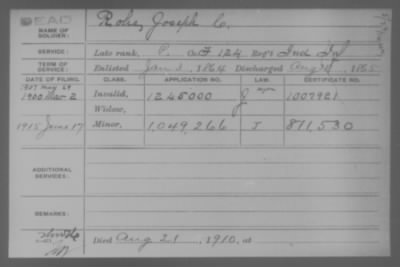 DEAD
NAME OF SOLDIER: Rohe, Joseph C.
SERVICE: Late rank, P. Co F, 124 Reg't Ind Inf
TERM OF SERVICE: Enlisted Jan 2, 1864 Discharged Aug 31, 1865
DATE OF FILING. CLASS. APPLICATION NO. LAW. CERTIFICATE NO.
1907 May 29
1900 Mar 2 Invalid, 1245000 1007921
Widow,
1915 June 17 Minor, 1,049,266 J 871,530
ADDITIONAL SERVICES:
REMARKS:
Died Aug 21, 1910, at